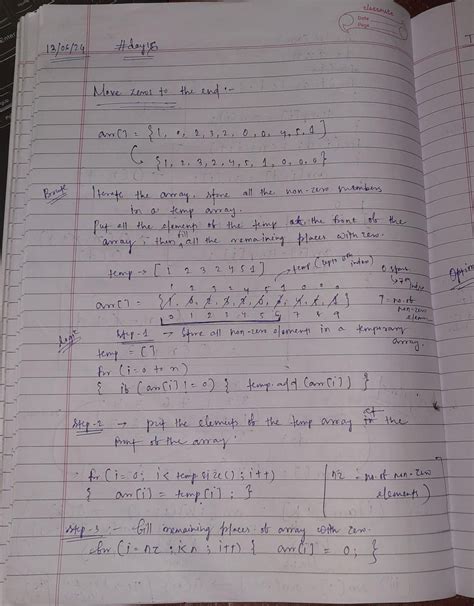 classmate
Date
Page
13/06/24 #day15
Move zeros to the end :-
arr[] = {1, 0, 2, 3, 2, 0, 0, 4, 5, 1}
{1, 2, 3, 2, 4, 5, 1, 0, 0, 0}
Brute Iterate the array, store all the non-zero numbers
in a temp array.
Put all the elements of the temp at the front of the
array & then fill all the remaining places with zero.
temp → [1 2 3 2 4 5 1]
1 2 3 2 4 5 1 0 0 0
arr[] =
0 1 2 3 4 5 6 7 8 9
7 = no. of
non-zero
Logic Step-1 → Store all non-zero elements in a temporary
array.
temp = []
for (i=0 to n)
{ if (arr[i] != 0) { temp.add (arr[i]) }
Step-2 → put the elements of the temp array at the
front of the array.
for (i=0; i< temp.size(); i++)
{ arr[i] = temp[i]; }
nz = no. of non-zero
elements
Step-3 :- fill remaining places of array with zero.
for (i=nz ; i<n ; i++) { arr[i] = 0; }